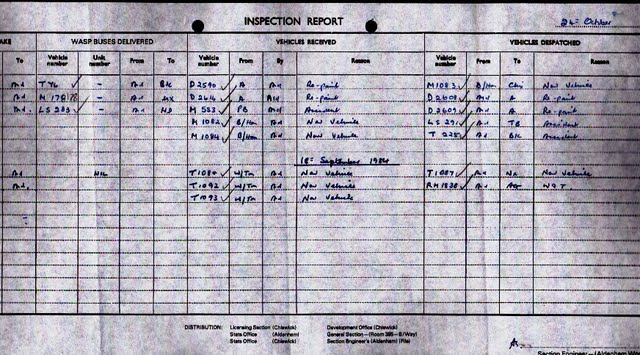 INSPECTION REPORT
24th October
AKE WASP BUSES DELIVERED VEHICLES RECEIVED VEHICLES DESPATCHED
To Vehicle number Unit number From To Vehicle number From By Reason Vehicle number From To Reason
Ad TYL - Ad BK D2590 A Ad Re-paint M1083 B/Hm New Vehicle
Ad M 178 - Ad D2614 A Ad Re-paint D2609 Ad A Re-paint
Ad LS 283 - Ad M 553 PB Ad Accident D2609 Ad A Re-paint
M 1082 B/Hm Ad New Vehicle LS 291 Ad TB Accident
M 1084 B/Hm Ad New Vehicle T 225 Ad BK Accident
18th September 1984
Ad T1080 W/Tn Ad New Vehicle T1087 Ad Nx New Vehicle
Ad T1092 W/Tn Ad New Vehicle RM1838 Ad
T1093 W/Tn Ad New Vehicle
DISTRIBUTION: Licensing Section (Chiswick) Development Office (Chiswick)
Stats Office (Aldenham) General Section - (Room 395 - B/Way)
Stats Office (Chiswick) Section Engineer's (Aldenham) (File)
Section Engineer - (Aldenham Wor